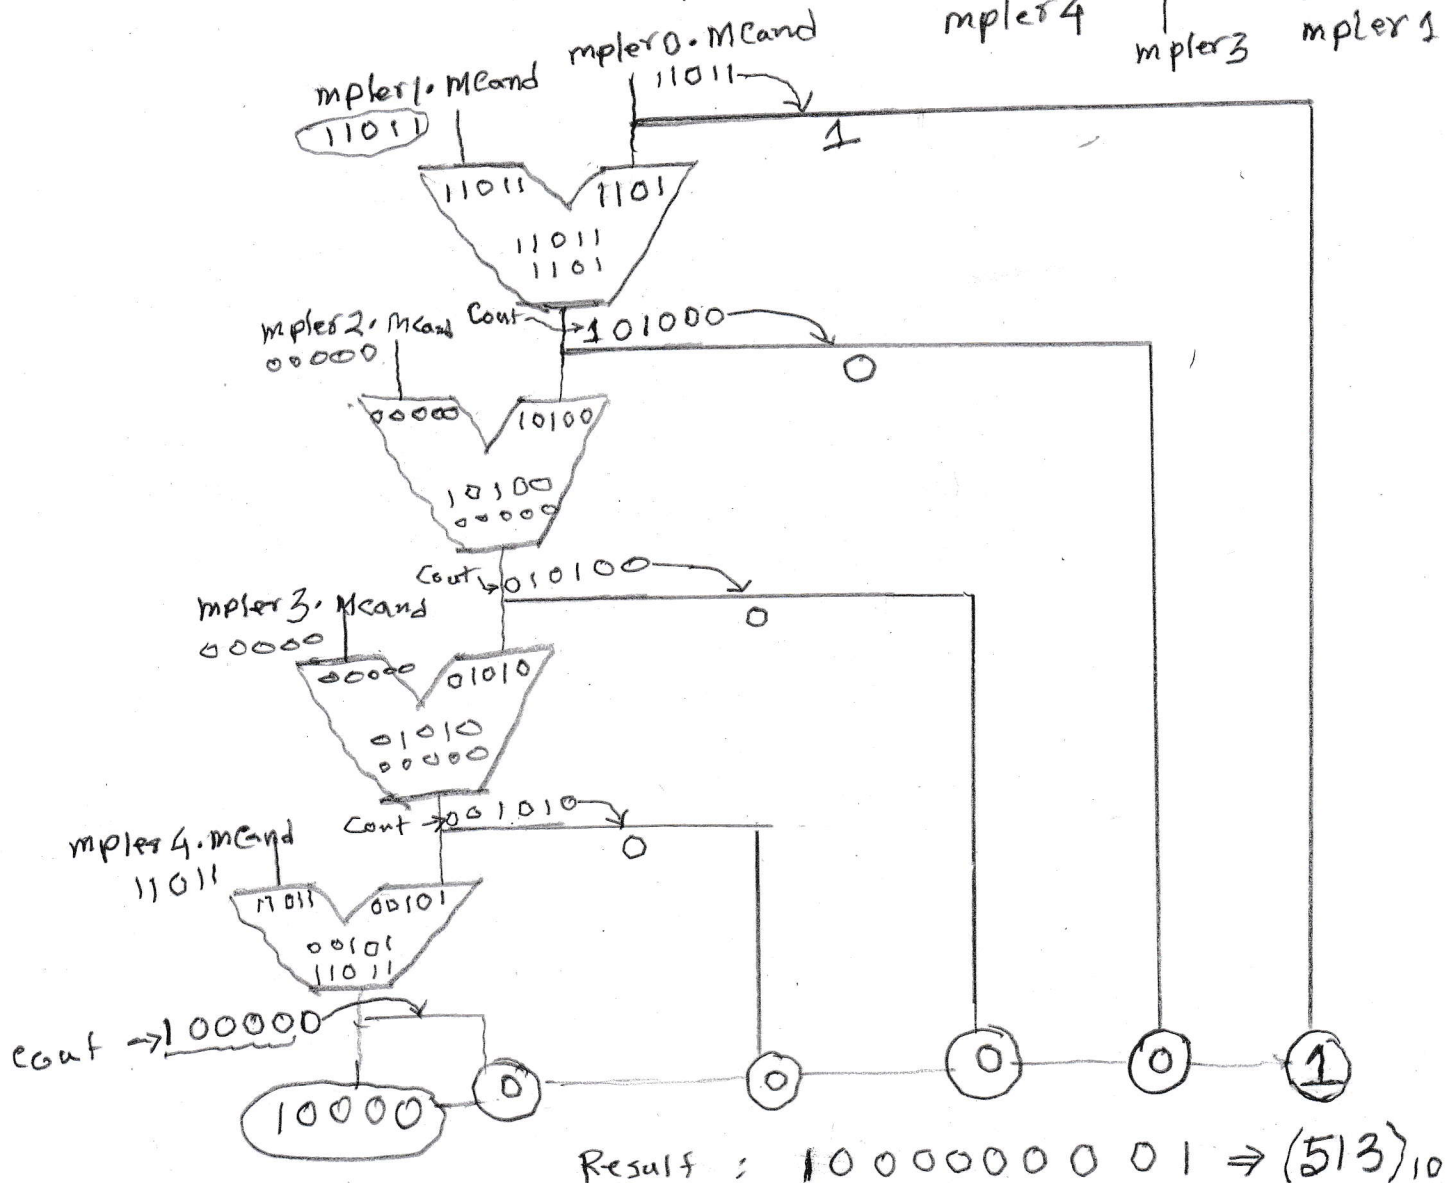 mpler4
mpler3
mpler1
mpler0.Mcand
11011
1
mpler1.Mcand
11011
11011
1101
11011
1101
Cout
101000
0
mpler2.Mcand
00000
00000
10100
10100
00000
Cout
010100
0
mpler3.Mcand
00000
00000
01010
01010
00000
Cout
001010
0
mpler4.Mcand
11011
11011
00101
00101
11011
Cout
100000
10000
0
0
0
0
1
Result : 1000000001 ⇒ (513)10